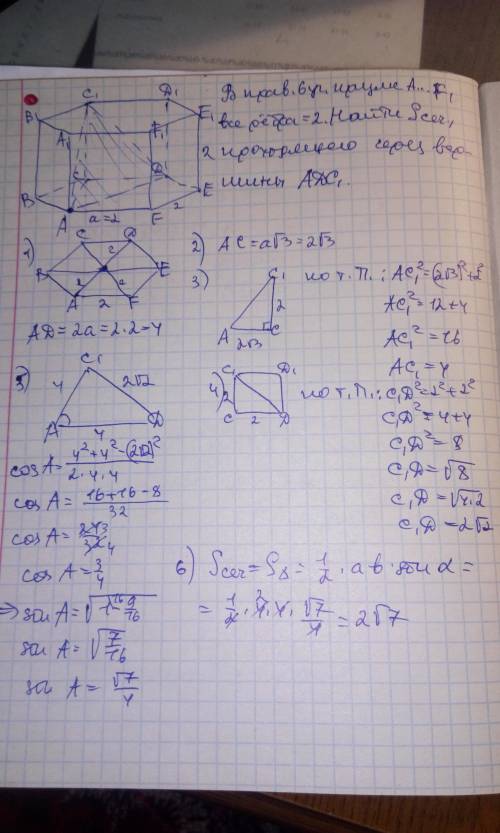 В прав. 6уг. призме A...F₁
все рёбра=2. Найти Sсеч,
проходящего через вер-
шины ADC₁.
C₁ D₁
B₁ E₁
A₁ F₁
2
C D
B E
A a=2 F 2
1)
C D
2
B E
2 2
A 2 F
AD=2a=2·2=4
2) AC=a√3=2√3
3)
C₁
2
A C
2√3
по т. П.: AC₁²=(2√3)²+2²
AC₁²=12+4
AC₁²=16
AC₁=4
4)
C₁ D₁
2
C 2 D
по т. П.: C₁D²=2²+2²
C₁D²=4+4
C₁D²=8
C₁D=√8
C₁D=√4·2
C₁D=2√2
5)
C₁
4 2√2
A 4 D
cos A=(4²+4²-(2√2)²)/(2·4·4)
cos A=(16+16-8)/32
cos A=24/32
cos A=3/4
=> sin A=√(1-9/16)
sin A=√(7/16)
sin A=√7/4
6) Sсеч=S△=1/2·ab·sin α=
=1/2·4·4·√7/4=2√7